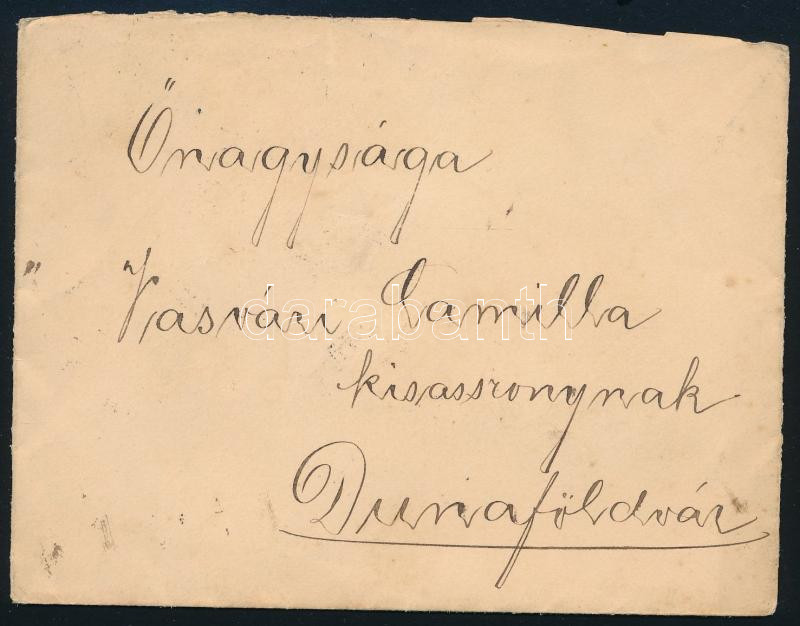 Őnagysága
Vasvári Camilla
darabanth
kisasszonynak
Dunaföldvár